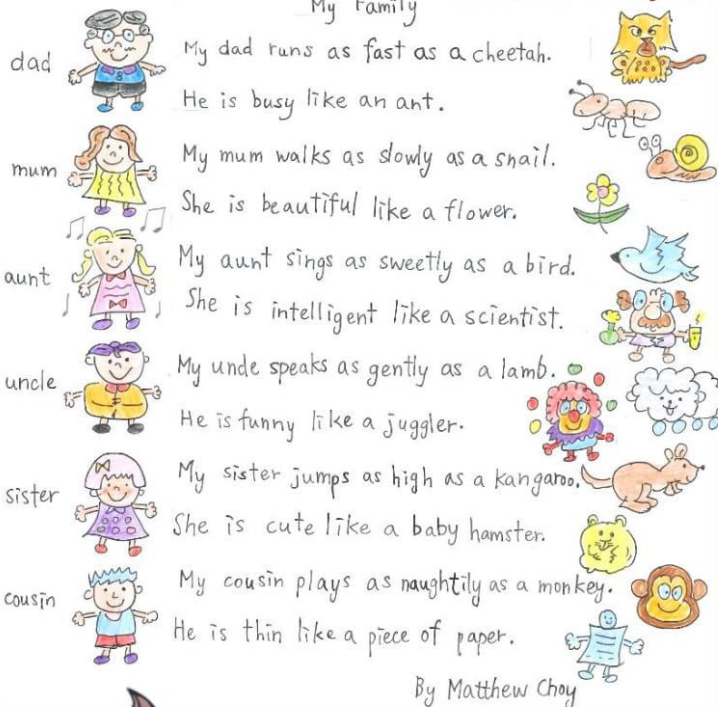 My Family
dad
My dad runs as fast as a cheetah.
He is busy like an ant.
mum
My mum walks as slowly as a snail.
She is beautiful like a flower.
aunt
My aunt sings as sweetly as a bird.
She is intelligent like a scientist.
uncle
My uncle speaks as gently as a lamb.
He is funny like a juggler.
sister
My sister jumps as high as a kangaroo.
She is cute like a baby hamster.
cousin
My cousin plays as naughtily as a monkey.
He is thin like a piece of paper.
By Matthew Choy